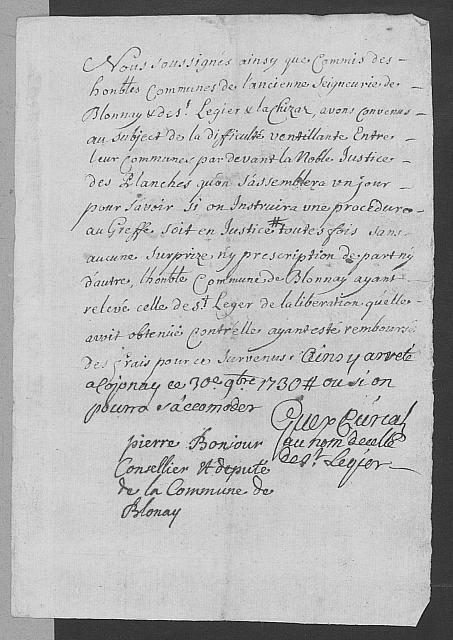 Nous soussignés ainsy que Commis des
honbles Communes de l'ancienne Seigneurie de
Blonnay & de st Legier & la Chizaz, avons convenus
au subject de la difficulté ventillante Entre
leur Communes par devant la Noble Justice
des Planches qu'on s'assemblera un jour
pour savoir si on Instruira une procedure
au Greffe soit en Justice # toutes fois sans
aucune surprize n'y prescription de part n'y
d'autre, l'honble Commune de Blonnay ayant
relevé celle de st Leger de la liberation qu'elle
avoit obtenue Contr'elle ayant esté remboursé
des frais pour ce survenus. Ainsy arreté
a ce 30e 9bre 1730 # ou si on
pourra s'accomoder
pierre Bonjour
Consellier & deputé
de la Commune de
Blonay
au nom de celle
de st Legier